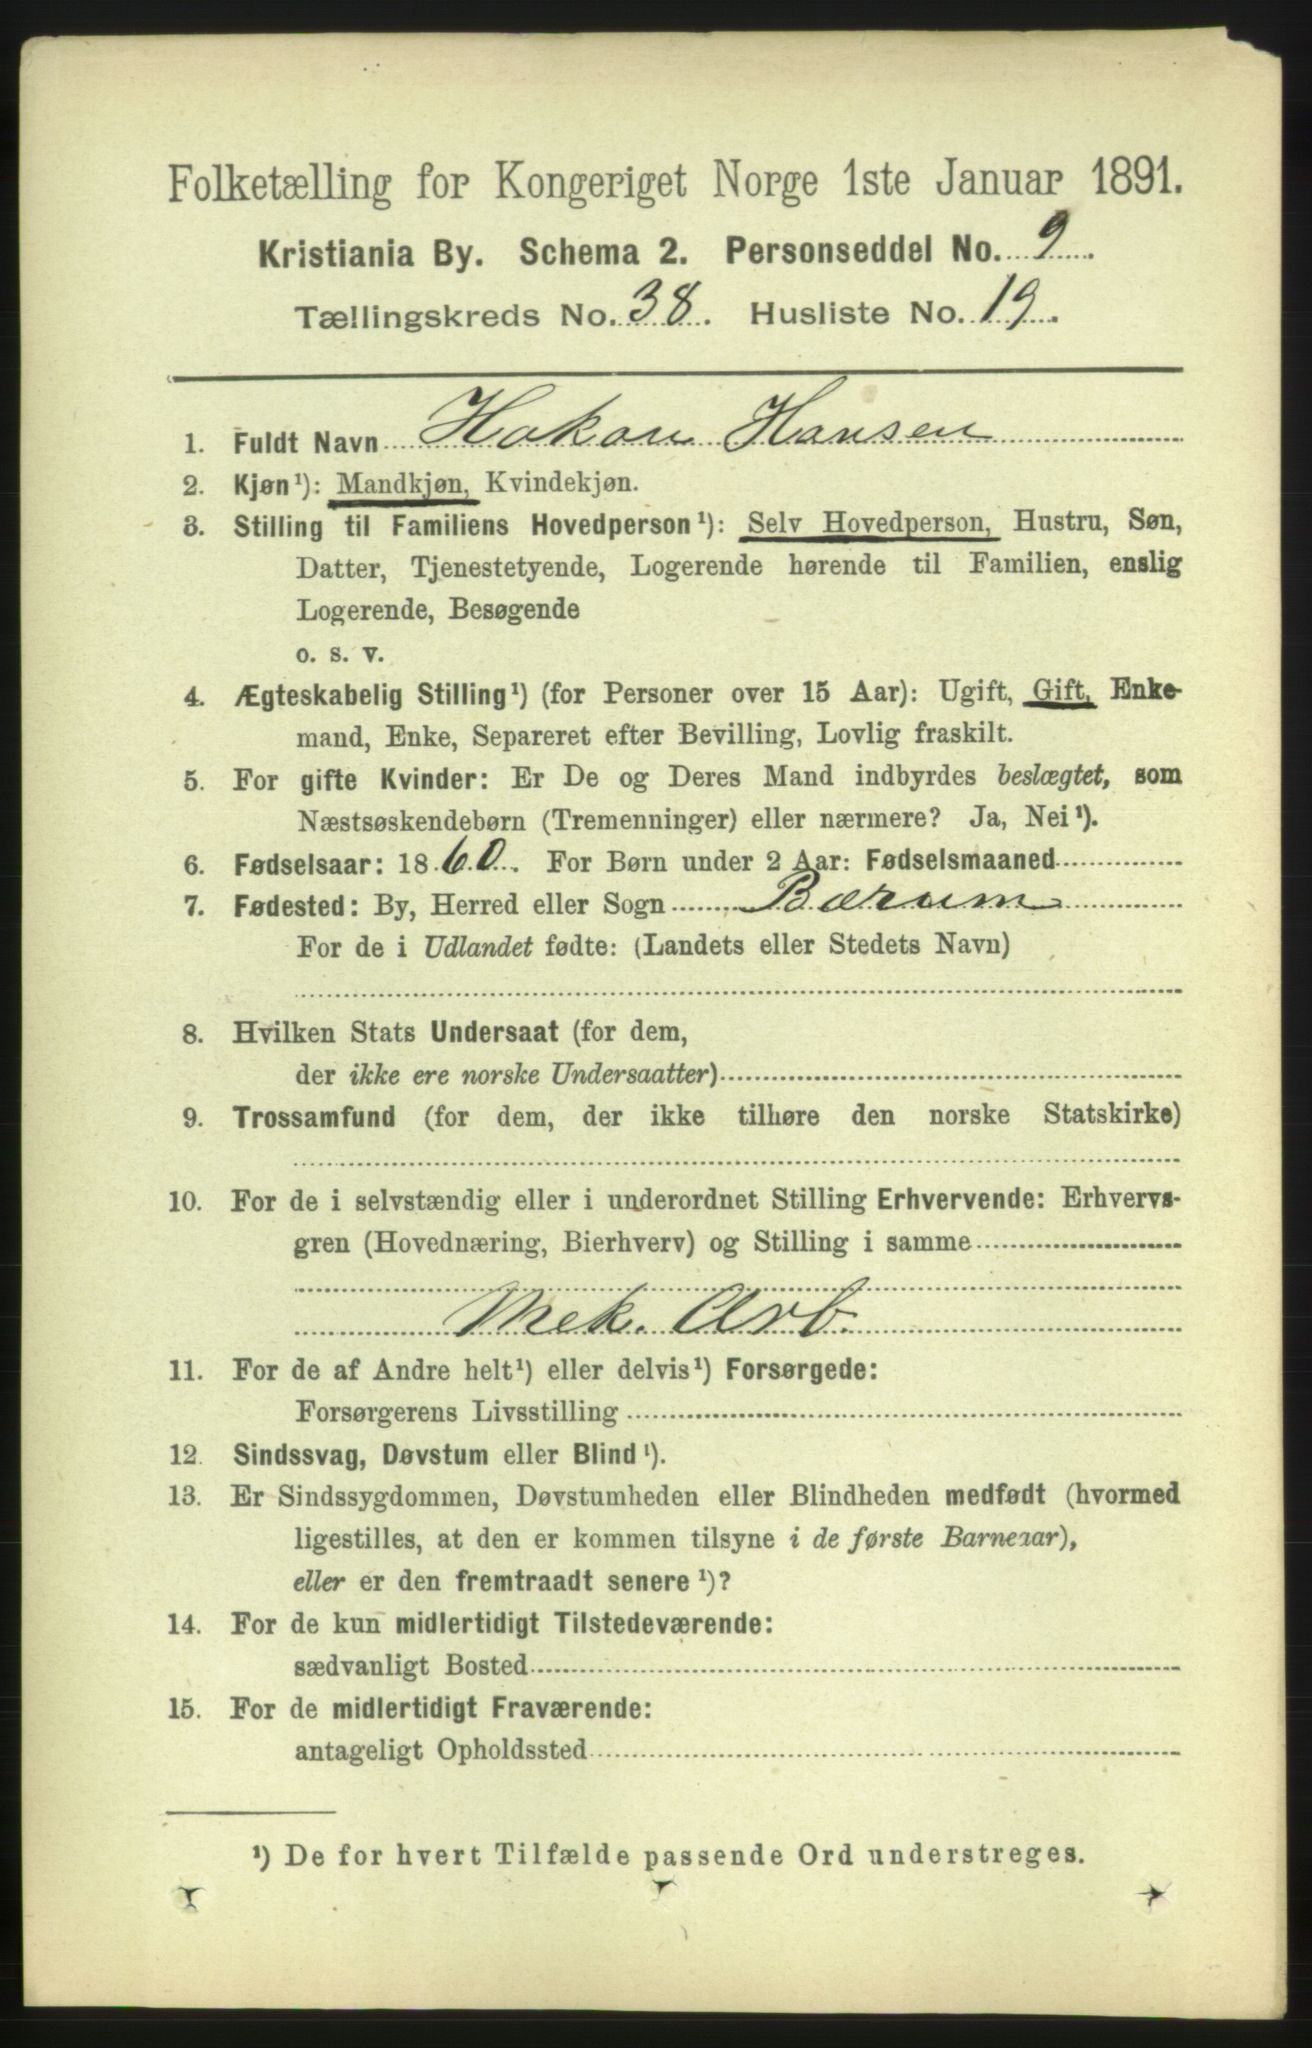 Folketælling for Kongeriget Norge 1ste Januar 1891.
Kristiania By. Schema 2. Personseddel No. 9.
Tællingskreds No. 38. Husliste No. 19.
1. Fuldt Navn Hakon Hansen
2. Kjøn¹): Mandkjøn, Kvindekjøn.
3. Stilling til Familiens Hovedperson¹): Selv Hovedperson, Hustru, Søn,
Datter, Tjenestetyende, Logerende hørende til Familien, enslig
Logerende, Besøgende
o. s. v.
4. Ægteskabelig Stilling¹) (for Personer over 15 Aar): Ugift, Gift, Enke-
mand, Enke, Separeret efter Bevilling, Lovlig fraskilt.
5. For gifte Kvinder: Er De og Deres Mand indbyrdes beslægtet, som
Næstsøskendebørn (Tremenninger) eller nærmere? Ja, Nei¹).
6. Fødselsaar: 1860. For Børn under 2 Aar: Fødselsmaaned
7. Fødested: By, Herred eller Sogn Bærum
For de i Udlandet fødte: (Landets eller Stedets Navn)
8. Hvilken Stats Undersaat (for dem,
der ikke ere norske Undersaatter)
9. Trossamfund (for dem, der ikke tilhøre den norske Statskirke)
10. For de i selvstændig eller i underordnet Stilling Erhvervende: Erhvervs-
gren (Hovednæring, Bierhverv) og Stilling i samme
Mek. Arb.
11. For de af Andre helt¹) eller delvis¹) Forsørgede:
Forsørgerens Livsstilling
12. Sindssvag, Døvstum eller Blind¹).
13. Er Sindssygdommen, Døvstumheden eller Blindheden medfødt (hvormed
ligestilles, at den er kommen tilsyne i de første Barneaar),
eller er den fremtraadt senere¹)?
14. For de kun midlertidigt Tilstedeværende:
sædvanligt Bosted
15. For de midlertidigt Fraværende:
antageligt Opholdssted
¹) De for hvert Tilfælde passende Ord understreges.